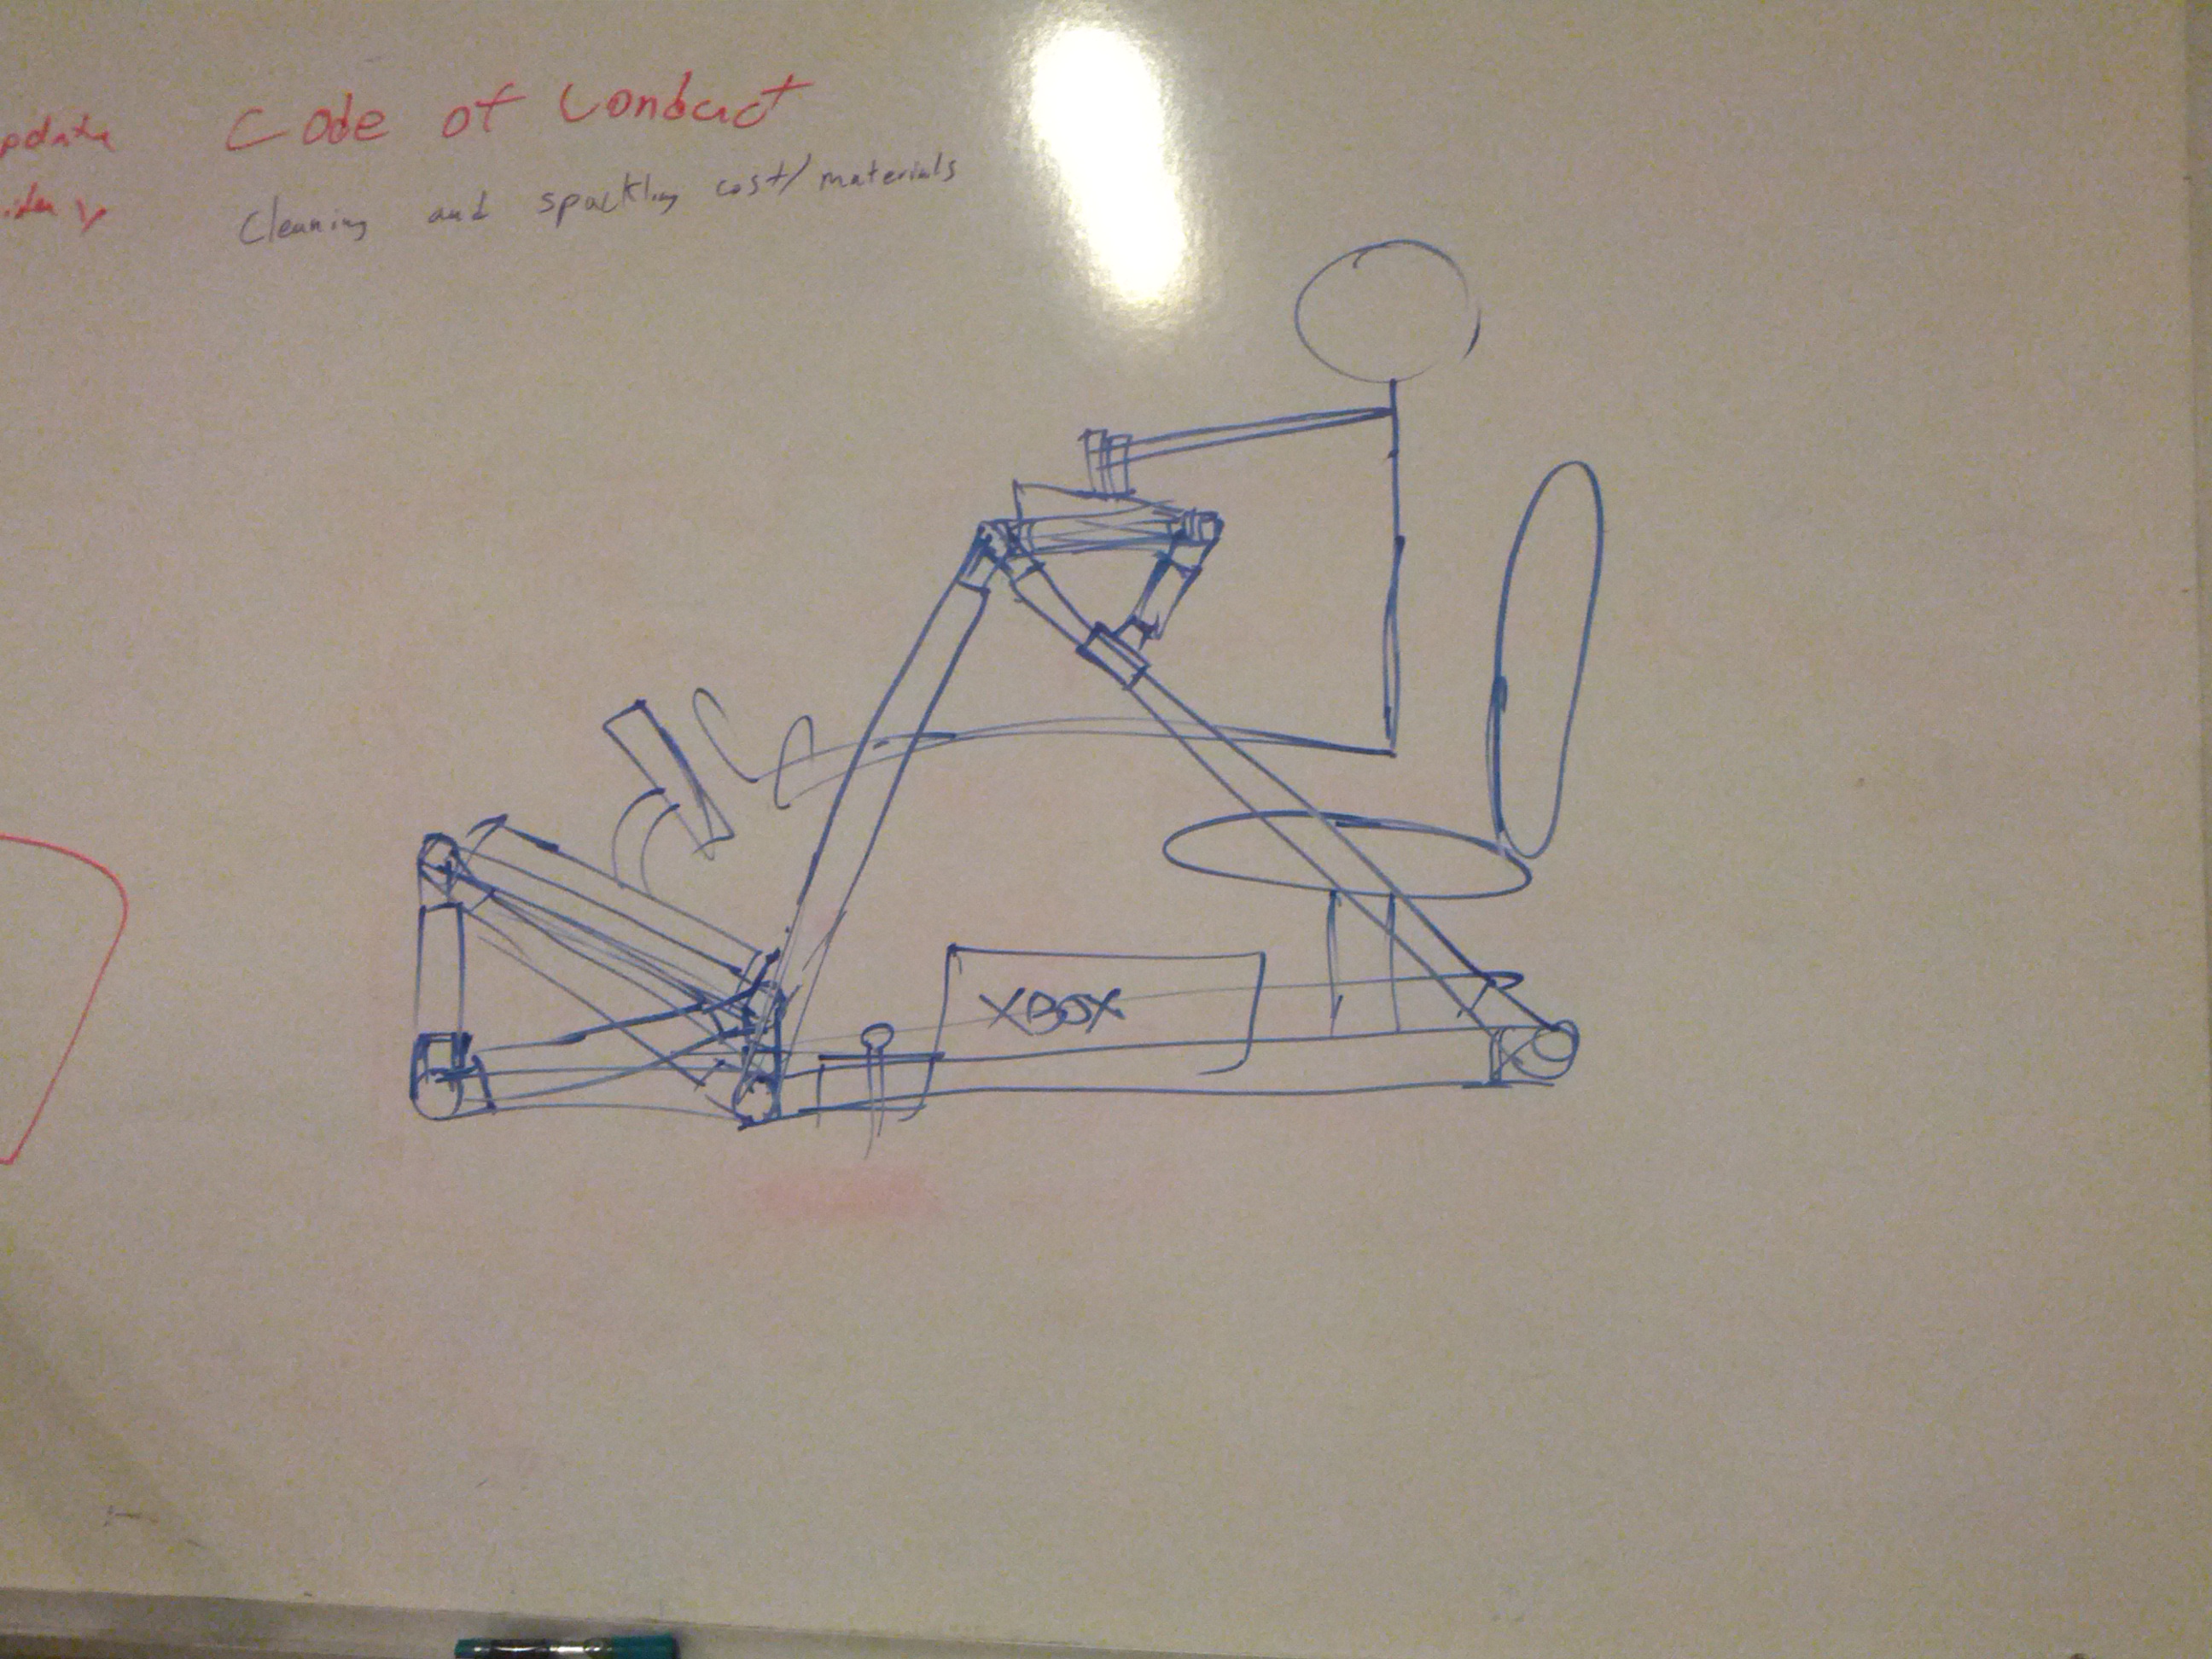 Code of Conduct
Cleaning and spackling cost/materials
XBOX